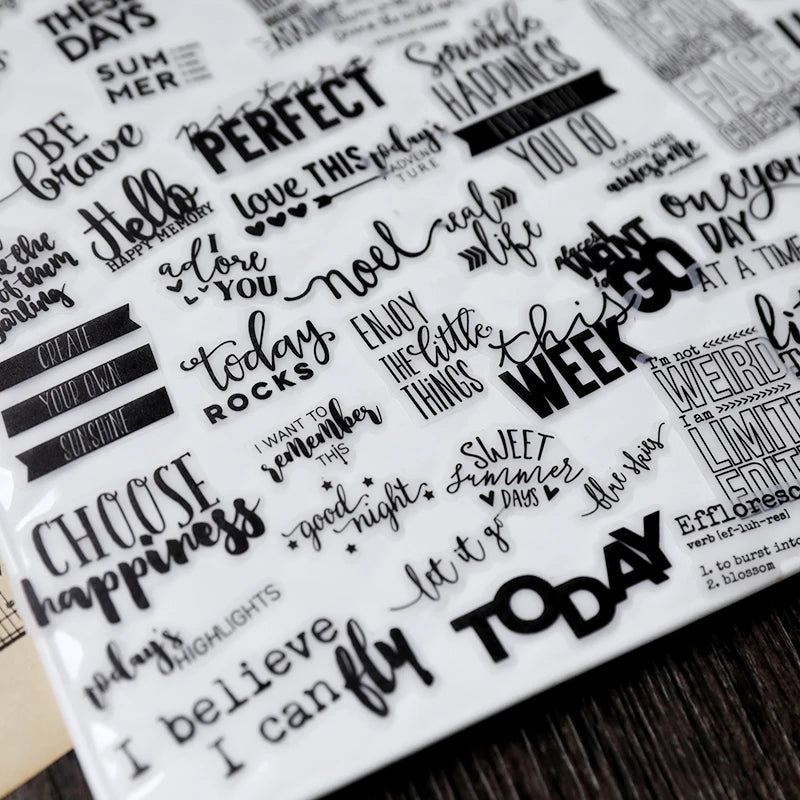 THESE
DAYS
SUM
MER
BE
brave
picture
PERFECT
Sprinkle
HAPPINESS
YOU GO.
Hello
HAPPY MEMORY
love THIS
today's
ADVEN
TURE
today was
awesome
I
adore
YOU
noel
real
life
places I
WANT
to
GO
only you
DAY
AT A TIME
the
of them
darling
CREATE
YOUR OWN
SUNSHINE
today
ROCKS
ENJOY
THE little
THINGS
this
WEEK
I'm not
WEIRD
I am
LIMITED
EDITI
I WANT TO
remember
THIS
SWEET
summer
DAYS
blue skies
CHOOSE
happiness
good
night
let it go
TODAY
Effloresc
verb [ef-luh-res]
1. to burst into
2. blossom
today's
HIGHLIGHTS
I believe
I can fly